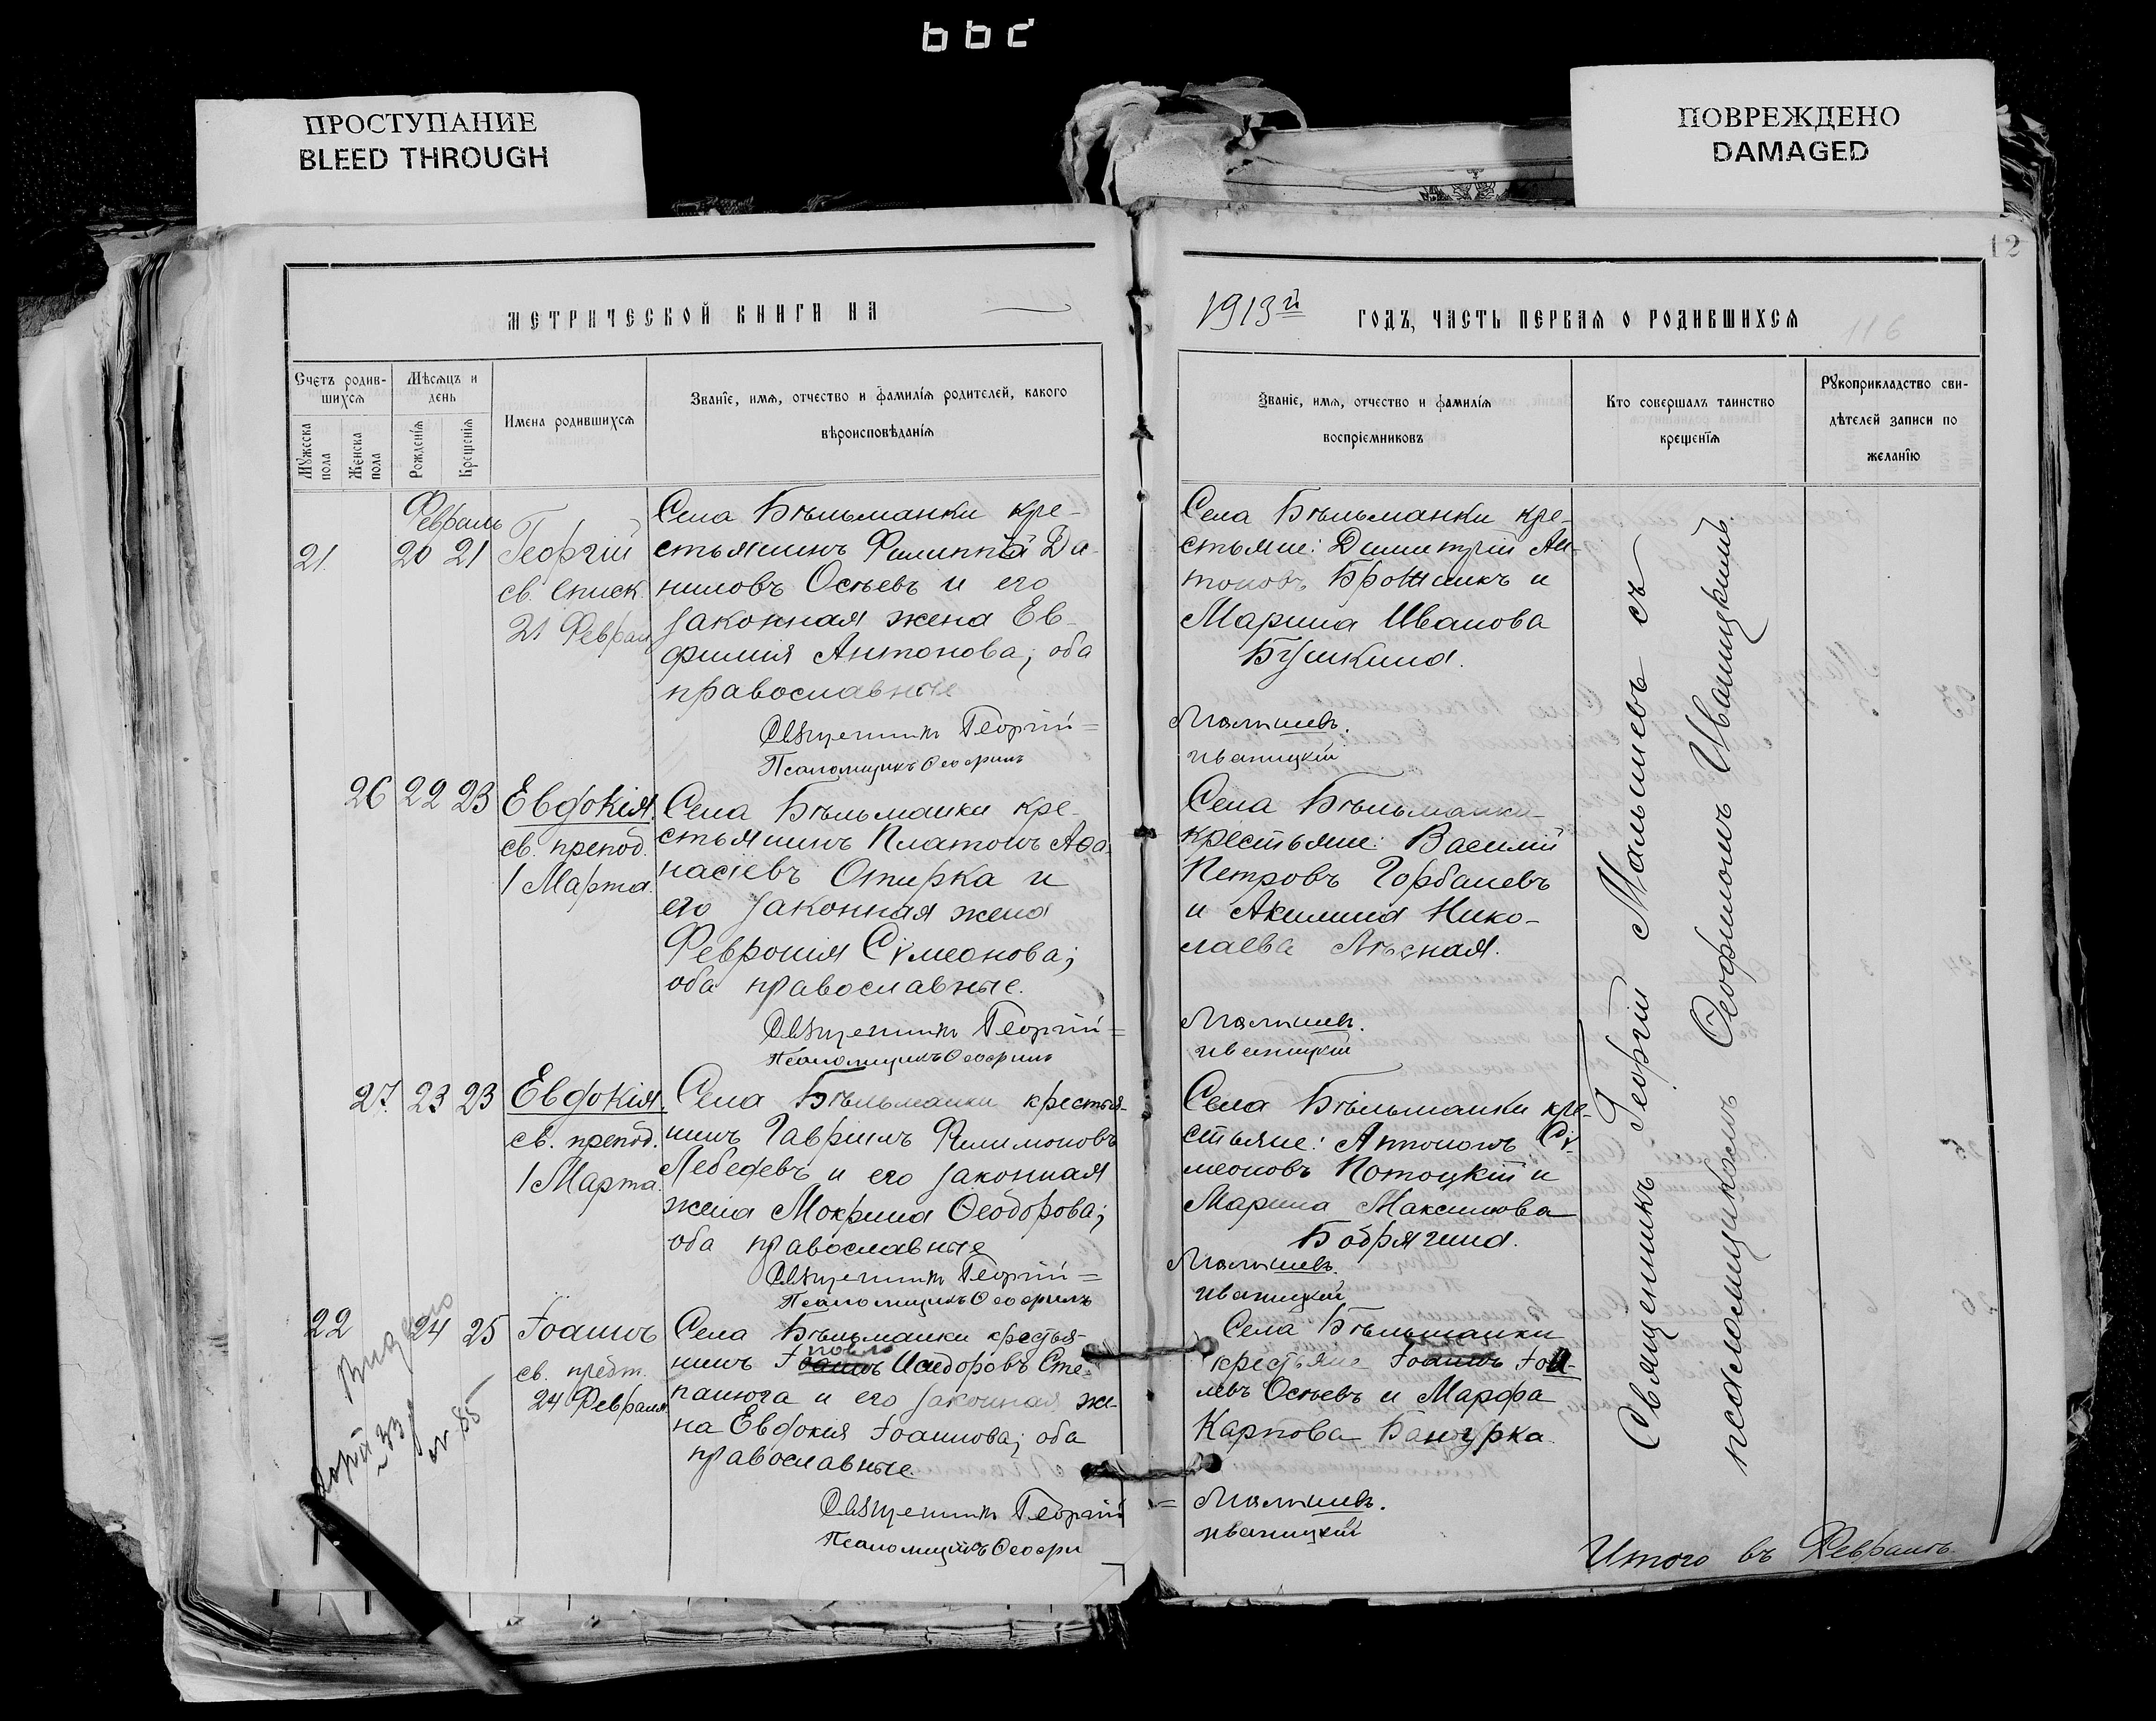 ррс
ПРОСТУПАНИЕ
BLEED THROUGH
ПОВРЕЖДЕНО
DAMAGED
12
МЕТРИЧЕСКОЙ КНИГИ НА
1913й ГОДЪ, ЧАСТЬ ПЕРВАЯ О РОДИВШИХСЯ
116
Счетъ родив-
шихся
Мужеска пола
Женска пола
Мѣсяцъ и день
Рожденія
Крещенія
Имена родившихся
Званіе, имя, отчество и фамилія родителей, какого
вѣроисповѣданія
Званіе, имя, отчество и фамилія
воспріемниковъ
Кто совершалъ таинство
крещенія
Рукоприкладство сви-
дѣтелей записи по
желанію
Февраль
21. 20 21
Георгій
св. Еписк.
21 Феврал
Села Бѣльманки кре-
стьянинъ Филиппъ Да-
ниловъ Осьевъ и его
законная жена Ев-
фимія Антонова; оба
православные
Священникъ Георгій =
Псаломщикъ Ѳеофилъ
Села Бѣльманки кре-
стьяне: Димитрій Ан-
тоновъ и
Марина Иванова
Бушкина.
Малышевъ.
Иваницкій
26 22 23
Евдокія.
св. препод.
1 Марта.
Села Бѣльманки кре-
стьянинъ Платонъ Аѳа-
насіевъ Опирка и
его законная жена
Февронія Сѵмеонова;
оба православные.
Священникъ Георгій =
Псаломщикъ Ѳеофилъ
Села Бѣльманки
крестьяне: Василій
Петровъ Горбачевъ
и Акилина Нико-
лаева Лѣсная.
Малышевъ.
Иваницкій
27. 23 23
Евдокія.
св. препод.
1 Марта.
Села Бѣльманки крестья-
нинъ Гавріилъ Филимоновъ
Лебедевъ и его законная
жена Мокрина Ѳеодорова;
оба православные
Священникъ Георгій =
Псаломщикъ Ѳеофилъ
Села Бѣльманки кре-
стьяне: Антонъ Сѵ-
меоновъ Потоцкій и
Марина Максимова
Бодрягина.
Малышевъ.
Иваницкій
22 24 25
Іоаннъ
св. предт.
24 Февраля
Села Бѣльманки крестья-
нинъ Іоаннъ Исидоровъ Сте-
панюга и его законная же-
на Евдокія Іоаннова; оба
православные.
Священникъ Георгій
Псаломщикъ Ѳеофи
Села Бѣльманки
крестьяне Іоаннъ
Осьевъ и Марфа
Карпова Банурка.
= Малышевъ.
Иваницкій
Священникъ Георгій Малышевъ съ
псаломщикомъ Ѳеофиломъ Иваницкимъ.
Итого въ Февралѣ